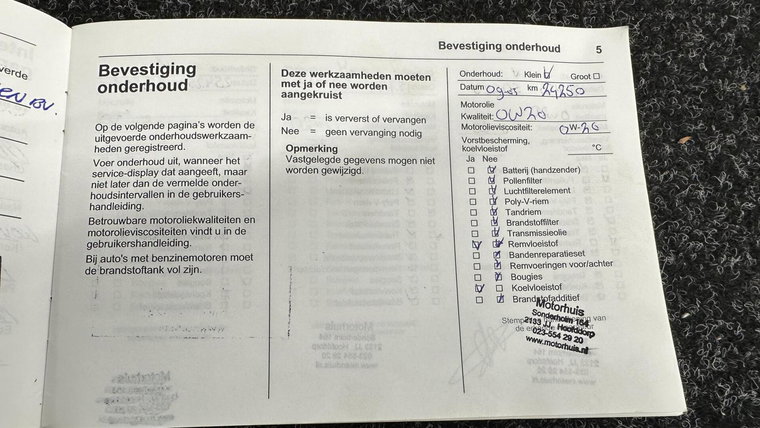 verde
Bevestiging onderhoud 5
Bevestiging
onderhoud
Op de volgende pagina's worden de
uitgevoerde onderhoudswerkzaam-
heden geregistreerd.
Voer onderhoud uit, wanneer het
service-display dat aangeeft, maar
niet later dan de vermelde onder-
houdsintervallen in de gebruikers-
handleiding.
Betrouwbare motoroliekwaliteiten en
motorolieviscositeiten vindt u in de
gebruikershandleiding.
Bij auto's met benzinemotoren moet
de brandstoftank vol zijn.
Deze werkzaamheden moeten
met ja of nee worden
aangekruist
Ja = is ververst of vervangen
Nee = geen vervanging nodig
Opmerking
Vastgelegde gegevens mogen niet
worden gewijzigd.
Onderhoud: Klein Groot
Datum km 24250
Motorolie
Kwaliteit: 0W20
Motorolieviscositeit: 0W-20
Vorstbescherming,
koelvloeistof °C
Ja Nee
Batterij (handzender)
Pollenfilter
Luchtfilterelement
Poly-V-riem
Tandriem
Brandstoffilter
Transmissieolie
Remvloeistof
Bandenreparatieset
Remvoeringen voor/achter
Bougies
Koelvloeistof
Brandstofadditief
Motorhuis
Sonderholm 164
2133 JJ, Hoofddorp
023-554 29 20
www.motorhuis.nl